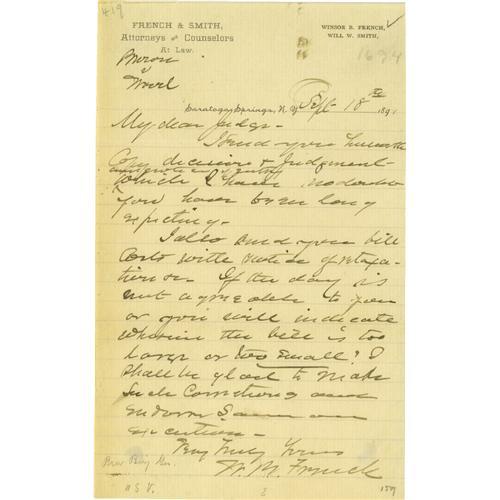 419
FRENCH & SMITH,
Attorneys & Counselors
At Law.
WINSOR B. FRENCH,
WILL W. SMITH,
1694
vs
Saratoga Springs, N. Y. Sept 18th 189
My dear Judge-
I send you herewith
Copy decision & Judgment
which I have no doubt
you have been long
expecting.
I also send you bill
Costs with notice of retaxa-
tion. If the day is
not agreeable to you
or you will indicate
wherein the bill is too
large or too small? I
shall be glad to make
such corrections and
endorse Same on
execution.
Very Truly Yours
W. B. French
Brev Brig Gen.
U S V.
2
159